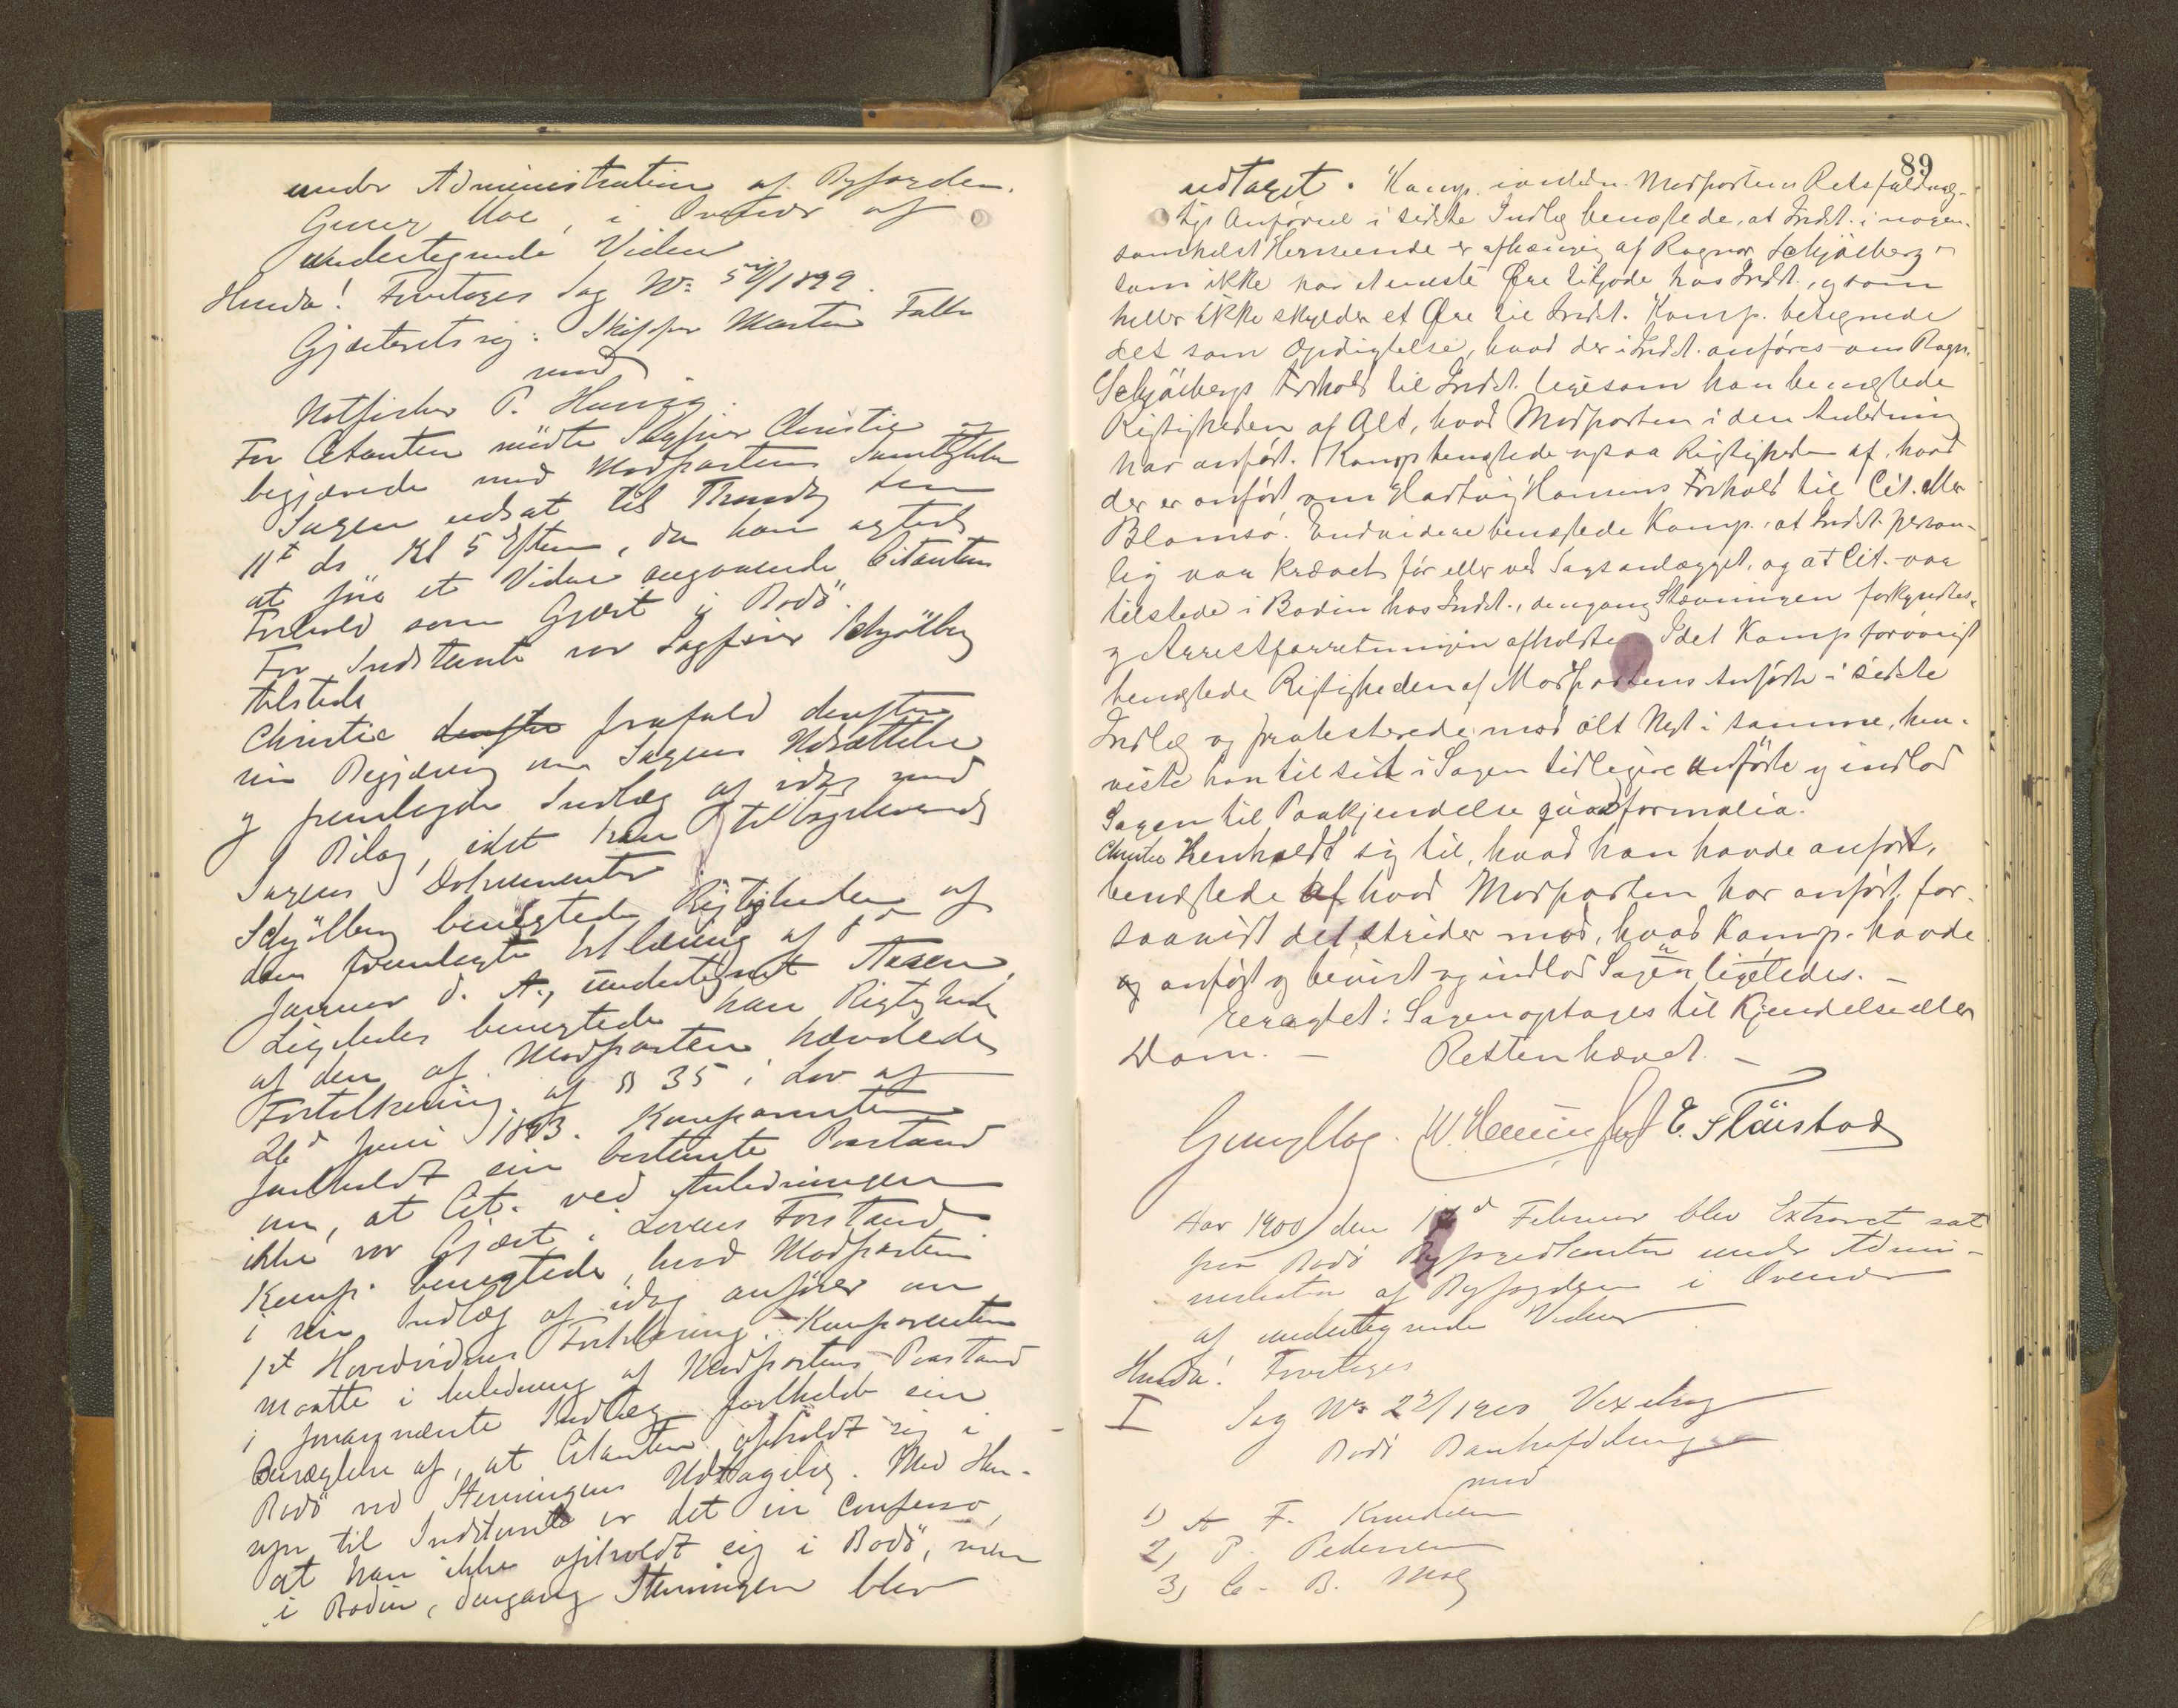 under Administration af Byfogden.
Georg Moe, i Overvær af
undertegnede Vidner
Hvorda! Foretages Sag No 54/1899.
Gjæsteretssag: Skipper Morten Falk
mod
Notfisker P. Hansen.
For Citanten mødte Sagfører Christie og
begjærede med Modpartens Samtykke
Sagen udsat til Thorsdag den
11te ds Kl 5 Eftm, da han agtede
at føre et Vidne angaaende Citantens
Forhold som Gjæst i Bodø.
For Indstevnte var Sagfører Schjølberg
tilstede
Christie derefter frafald derefter
sin Begjæring om Sagens Udsættelse
og fremlagde Indlæg af idag med
1 Bilag, idet han tilbageleverede
Sagens Dokumenter
Schjølberg benegtede Rigtigheden af
den fremlagte Erklæring af
Januar d. A., undertegnet Aasen
Ligeledes benegtede han Rigtigheden
af den af Modparten hævdede
Fortolkning af § 35 i Lov af
26d Juni 1893. Komparenten
fastholdt sin bestemte Paastand
om, at Cit. ved Anledningen
ikke var Gjæst i Lovens Forstand
Komp. benegtede, hvad Modparten
i sin Indlæg af idag anfører om
1st Hovedvidnes Forklaring. Komparenten
maatte i Anledning af Modpartens Paastand
i forannævnte Indlæg fastholde sin
Benægtelse af, at Citanten opholdt sig i
Bodø ved Stevningens Udtagelse. Med Hen-
syn til Indstevnte er det in confesso,
at han ikke opholdt sig i Bodø, men
i Bodin, dengang Stevningen blev
89
udtaget. Komp. Modpartens Retsfuldmæg-
tigs Anførsel i sidste Indlæg benægtede, at Indst. i nogen-
somhelst Henseende er afhængig af Ragnar Schjølberg,
som ikke har et eneste Øre tilgode hos Indst., og som
heller ikke skylder et Øre til Indst. Komp. betegnede
det som Opdigtelse, hvad der i Indst. anføres om Ragn.
Schjølbergs Forhold til Indst. ligesom han benegtede
Rigtigheden af Alt, hvad Modparten i den Anledning
har anført. Komp benegtede ogsaa Rigtigheden af, hvad
der er anført om Hartvig Hansens Forhold til Cit. eller
Blomsø. Endvidere benegtede Komp., at Indst. person-
lig var krævet før eller ved Sagsanlægget, og at Cit. var
tilstede i Bodin hos Indst., dengang Stævningen forkyndtes
og Arrestforretningen afholdtes. Idet Komp forøvrigt
benegtede Rigtigheden af Modpartens Anførte i sidste
Indlæg og protesterede mod alt Nyt i samme, hen-
viste han til sit i Sagen tidligere anførte og indlod
Sagen til Paakjendelse quad formalia.
Christie Henholdt sig til, hvad han havde anført,
benegtede af hvad Modparten har anført, for-
saavidt det strider mod, hvad Komp. havde
og anført og bevist og indlod Sagen ligeledes. -
Eragtet: Sagen optages til Kjendelse eller
Dom. - Retten hævet. -
Georg Moe. E. Fløistad
Aar 1900 den Februar blev Extraret sat
paa Bodø Byfogedkontor under Admi-
nistration af Byfogden i Overvær
af undertegnede Vidner
Hvorda! Foretages
I Sag No 22/1900 Vexelsag
Bodø Bankafdeling
mod
1) A F. Knudsen
2) P. Pedersen
3) C. B. Moe